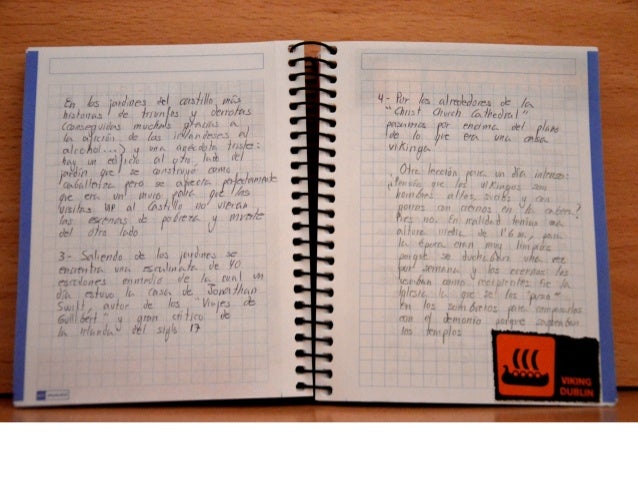 En los jardines del castillo más
historias de triunfos y derrotas
(conseguidas muchas gracias a
la afición de los irlandeses al
alcohol...) y una agécdota triste:
hay un edificio al otro lado del
jardín que se construyó como
caballeriza pero se aprecia perfectamente
que era un muro para que las
visitas VIP al Castillo no vieran
las escenas de pobreza y muerte
del otro lado.
3- Saliendo de los jardines se
encuentra una escalinata de 40
escalones enmedio de la cual un
día estuvo la casa de Jonathan
Swift, autor de los "Viajes de
Gulliver" y gran crítico de
la Irlanda del siglo 17
4- Por los alrededores de la
"Christ Church Cathedral"
pasamos por encima del plano
de lo que era una casa
vikinga.
Otra lección para un día intenso:
¿Pensáis que los vikingos son
hombres altos, sucios y con
gorros con cuernos en la cabeza?
Pues no. En realidad tenían una
altura media de 1'6 m, para
la época eran muy limpios
porque se duchaban una vez
por semana y los cuernos los
usaban como recipientes. Fue la
iglesia la que se los "puso"
en los sombreros para compararlos
con el demonio porque saqueaban
los templos
VIKING
DUBLIN